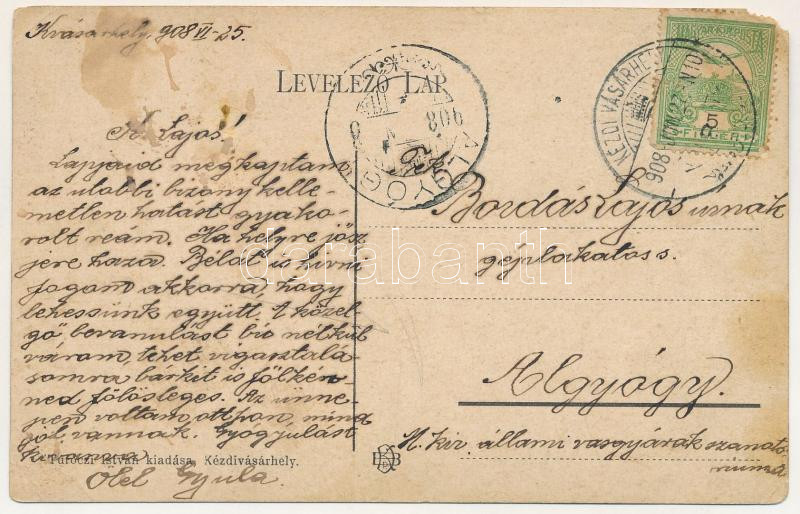 Kvásárhely, 908 VI-25.
LEVELEZŐ LAP.
K. Lajos!
Lapjaid megkaptam
az utolbbi bizony kelle-
metlen hatást gyako-
rolt reám. Ha helyre jösz
jere haza. Bélát is hivni
fogom akkorra, hogy
lehessünk együtt. A közel-
gő bevanulást bio nélkül
várom, tehet vigasztalá-
somra bárkit is fölkén-
ned fölösleges. Az ünne-
pen voltam otthon, mind
jól vannak. Gyógyulást
kivánva
Ölel Gyula
Turóczi István kiadása, Kézdivásárhely.
ALGYÓGY
908
KÉZDIVÁSÁRHELY
908
MAGY. KIR. POSTA
5
FILLÉR
Bordás Lajos úrnak
géplakatos s.
Algyógy.
M. kir. állami vasgyárak szanato-
riuma
darabanth